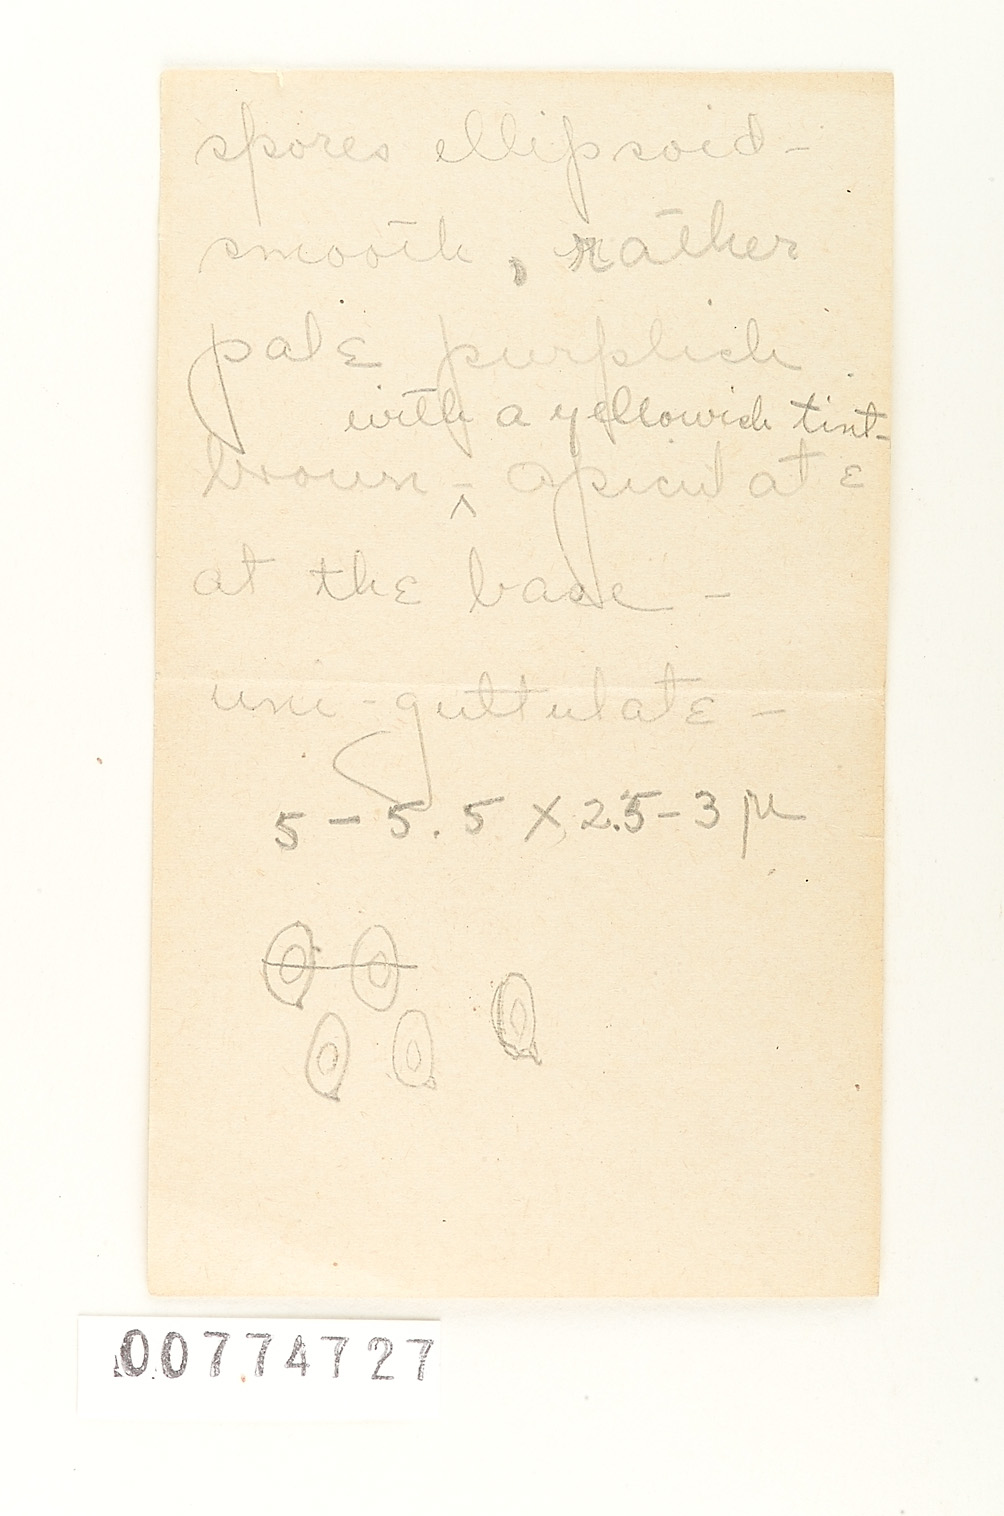 spores ellipsoid -
smooth, rather
pale purplish
with a yellowish tint-
brown - ^ apiculate
at the base -
uni-guttulate -
5 - 5.5 X 2.5 - 3 μ
00774727